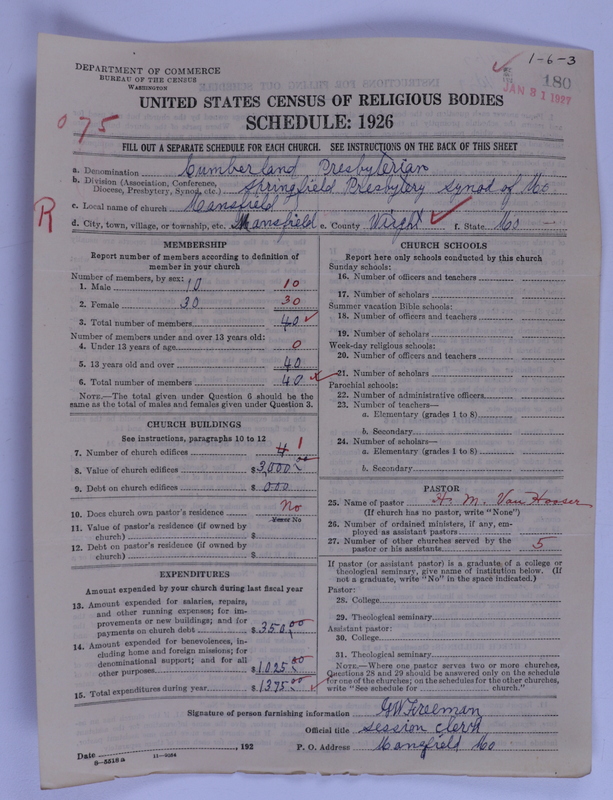 1-6-3
DEPARTMENT OF COMMERCE
BUREAU OF THE CENSUS
WASHINGTON
180
JAN 31 1927
UNITED STATES CENSUS OF RELIGIOUS BODIES
SCHEDULE: 1926
075
FILL OUT A SEPARATE SCHEDULE FOR EACH CHURCH. SEE INSTRUCTIONS ON THE BACK OF THIS SHEET
a. Denomination Cumberland Presbyterian
b. Division (Association, Conference, Diocese, Presbytery, Synod, etc.) Springfield Presbytery Synod of Mo
c. Local name of church Mansfield
R
d. City, town, village, or township, etc. Mansfield e. County Wright f. State Mo
MEMBERSHIP
Report number of members according to definition of
member in your church
Number of members, by sex:
1. Male 10 10
2. Female 30 30
3. Total number of members 40
Number of members under and over 13 years old:
4. Under 13 years of age 0
5. 13 years old and over 40
6. Total number of members 40
NOTE.—The total given under Question 6 should be the
same as the total of males and females given under Question 3.
CHURCH BUILDINGS
See instructions, paragraphs 10 to 12
7. Number of church edifices 1
8. Value of church edifices $3,000.00
9. Debt on church edifices $ 000
10. Does church own pastor's residence No
Yes or No
11. Value of pastor's residence (if owned by
church) $
12. Debt on pastor's residence (if owned by
church) $
EXPENDITURES
Amount expended by your church during last fiscal year
13. Amount expended for salaries, repairs,
and other running expenses; for im-
provements or new buildings; and for
payments on church debt $350.00
14. Amount expended for benevolences, in-
cluding home and foreign missions; for
denominational support; and for all
other purposes $1025.00
15. Total expenditures during year $1375.00
CHURCH SCHOOLS
Report here only schools conducted by this church
Sunday schools:
16. Number of officers and teachers
17. Number of scholars
Summer vacation Bible schools:
18. Number of officers and teachers
19. Number of scholars
Week-day religious schools:
20. Number of officers and teachers
21. Number of scholars
Parochial schools:
22. Number of administrative officers
23. Number of teachers—
a. Elementary (grades 1 to 8)
b. Secondary
24. Number of scholars—
a. Elementary (grades 1 to 8)
b. Secondary
PASTOR
25. Name of pastor H. M. Van Hooser
(If church has no pastor, write "None")
26. Number of ordained ministers, if any, em-
ployed as assistant pastors
27. Number of other churches served by the
pastor or his assistants 5
If pastor (or assistant pastor) is a graduate of a college or
theological seminary, give name of institution below. (If
not a graduate, write "No" in the space indicated.)
Pastor:
28. College
29. Theological seminary
Assistant pastor:
30. College
31. Theological seminary
NOTE.—Where one pastor serves two or more churches,
Questions 28 and 29 should be answered only on the schedule
for one of the churches; on the schedules for the other churches,
write "See schedule for church."
Signature of person furnishing information G W Freeman
Official title Session clerk
Date , 192 P. O. Address Mansfield Mo
8-5518a 11-9034